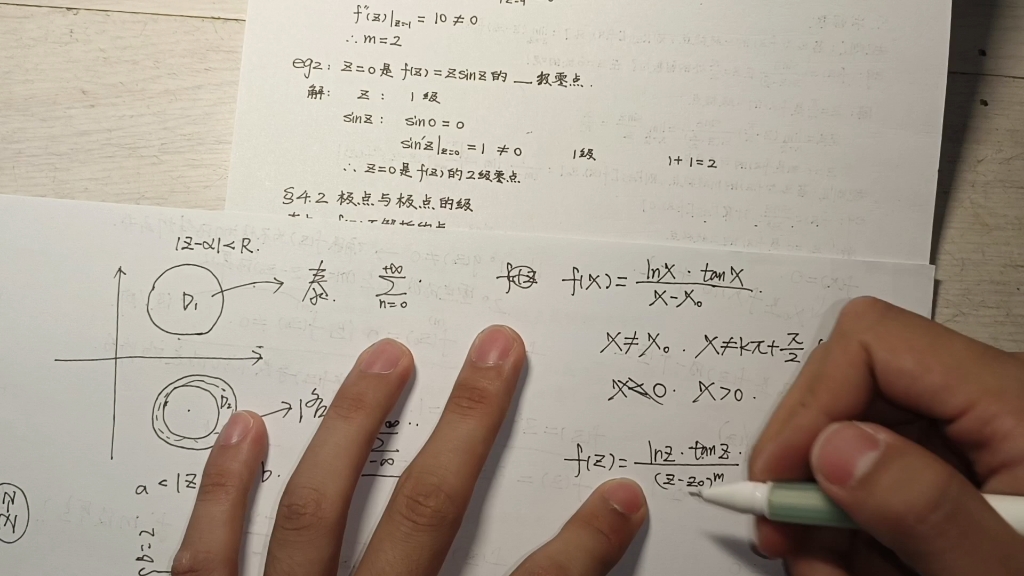 f''(z)|z=1 = 10 ≠ 0
∴ m = 2
eg2: z=0 是 f(z) = z sin z 的 __ 级零点.
解: z : 1级
sin z : sin 0 = 0
sin'z|z=0 = 1 ≠ 0 1级 1+1=2
∴ z=0 是 f(z) 的 2级零点
§4.2 极点与极点的级
|z-α| < R.
D₁
+∞
∑
n=0
f(x) = lnx · tanx / x-x₀
x ≠ x₀ . x ≠ kπ + π/2
x>0.
D₂
-∞
f(z) = lnz · tanz / (z-z₀)^m
a < |z
b.
b=2